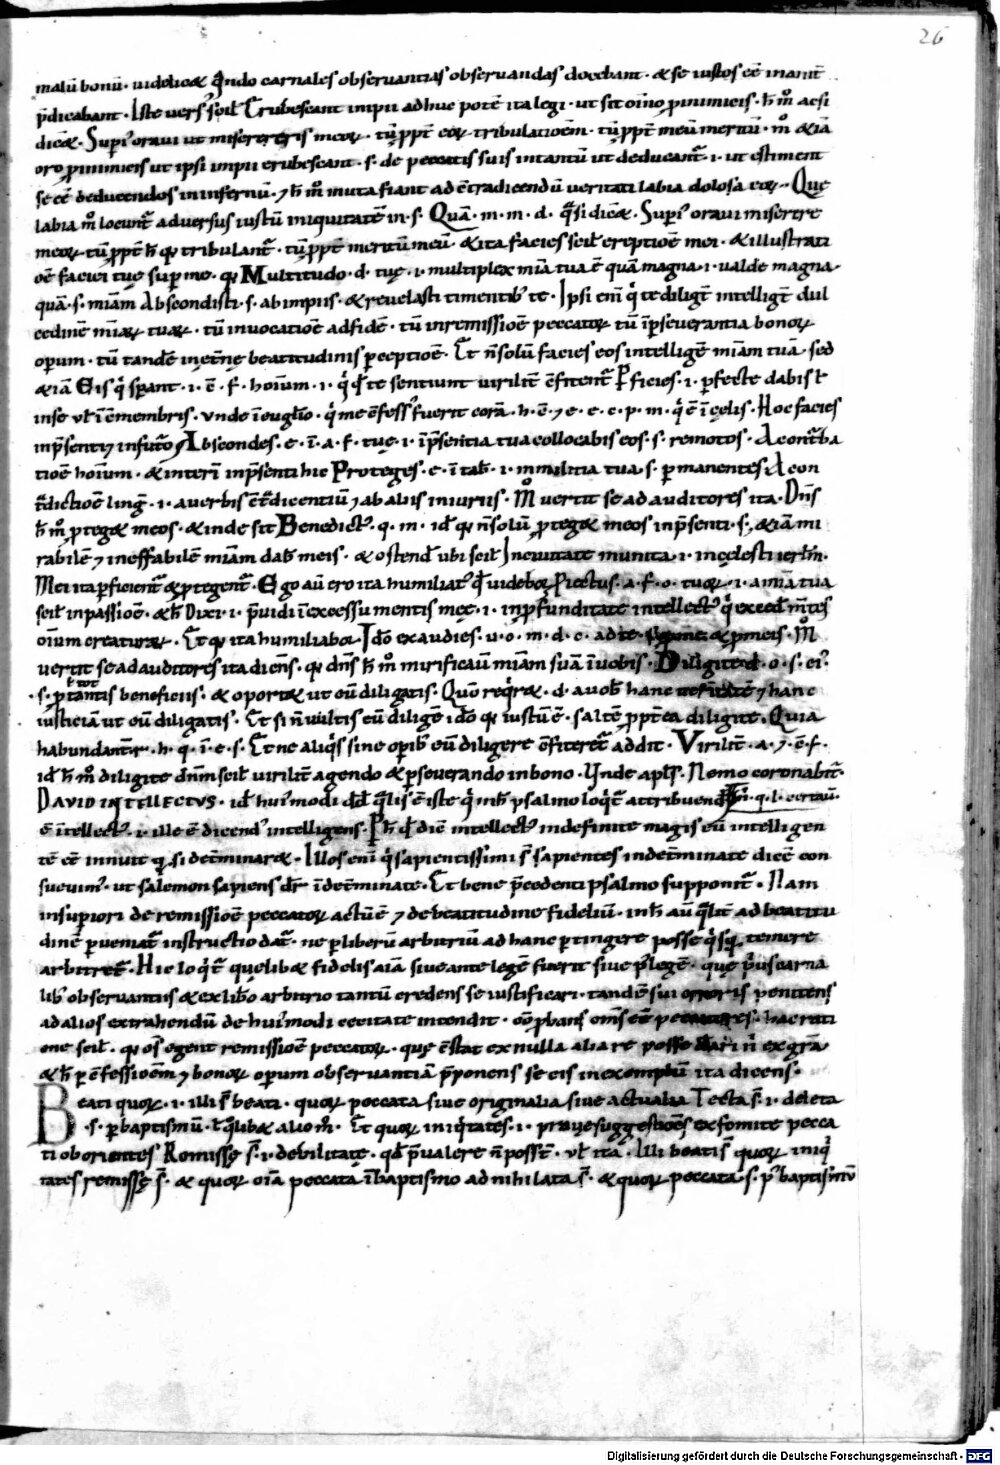 26
malū bonū · uidelicet q̄ndo carnales obseruantias obseruandas docebant · et se iustos eē inanit̄
p̄dicabant · Iste uers᷒ scil̄ Erubescant impii adhuc potē ita legi · ut sit oīno p̄ inimicis · h̄ m̊ acsi
dicet · Supi᷒ oraui ut miserereris meoꝝ · tū ꝓpt̄ eoꝝ tribulatioēm · tū ꝓpt̄ meū meritū · m̊ etiā
oro ꝓ inimicis ut ipsi impii erubescant · s · de peccatis suis intantū ut deducant᷒ · i · ut estiment
se eē deducendos in infernū · ⁊ h̄ m̊ muta fiant ad c̄tradicendū ueritati labia dolosa eoꝝ · Quę
labia m̊ locunt᷒ aduersus iustū iniquitatē in · s · Quā · m · m · d · q̄si dicet · Supi᷒ oraui miserere
meoꝝ · tū ꝓpt̄ h̄ qꝫ tribulant᷒ · tū ꝓpt̄ meritū meū · et ita facies scil̄ ereptioē mei · et illustrati
oē faciei tuę super me · qꝫ Multitudo · d · tuę · i · multiplex mīa tua ē quā magna · i · ualde magna ·
quā · s · mīam Abscondisti · s · ab impiis · et reuelasti timentib᷒ te · Ipsi eni q̇ te diligt̄ intelligt̄ dul
cedinē mīaꝝ tuaꝝ · tū inuocatioē ad fidē · tū in remissioē peccatoꝝ tū ī pseuerantia bonoꝝ
operum · tū tandē in et̄nę beatitudinis perceptioē · Et n̄ solū facies eos intelligē mīam tuā · sed
etiā Eis q̇ spant · i · c̄ · f · hoium · i · q̇ qd̄ te sentiunt uirilit̄ c̄fitent᷒ Pficies · i · pfecte dabis t̄
in se ul̄ ī c̄ membris · unde ī euḡlio · q̇ me c̄fess᷒ fuerit corā · h · c̄ · ⁊ e · e · c · p · m · q̇ ē ī cęlis · Hoc facies
in p̄senti ⁊ in futuro ⁊ Abscondes · e · ī · a · f · tuę · i · ī p̄sentia tua collocabis eos · s · remotos · A cont᷒ba
tioē hoium · et interī in p̄senti hic Proteges · e · ī tab̄ · i · in militia tua · s · permanentes A con
t᷒dictioē linḡ · i · a uerbis c̄t᷒dicentiū ⁊ ab aliis iniuriis · M̊ uertit se ad auditores ita · Dn̄s
h̄ m̊ ꝓteget meos · et inde sit Benedict᷒ · q · m · id̄ qꝫ n̄ solū ꝓteget meos in p̄senti · s · etiā mi
rabilē ⁊ ineffabilē mīam dab̄ meis · et ostend̄ ubi scil̄ In ciuitate munita · i · in cęlesti ierl̄m ·
Mei ita pficient᷒ et ꝓtegent᷒ · Ego aū ero ita humiliat᷒ qd̄ uidebor Piectus · a · f · o · tuoꝝ · i · a mīa tua
scil̄ in passioē · et h̄ Dixi · i · p̄uidi ī excessu mentis meę · i · in ꝓfunditate intellect᷒ q̇ exced̄ m̄tes
oīum creaturaꝝ · Et qꝫ ita humiliabor · Ido exaudies · u · o · m · d · c · ad te · et p meis · M̊
uertit se ad auditores ita dicens · qꝫ dn̄s h̄ m̊ mirificauit mīam suā ī uobis · Diligite d · o · s · ei᷒
· s · ꝓ tantis beneficiis · et oportet ut eū diligatis · Quō req̇ret · d · a uob̄ hanc ⁊ hanc
iusticiā ut eū diligatis · Et si n̄ uultis eū diligē ido qꝫ iustū ē · saltē ꝓpt̄ ea diligite · Quia
habundant᷒ · h · q̇ · ī · e · s · Et ne aliq̇s sine opib᷒ eū diligere c̄fiteret᷒ addit · Virilit̄ · a · ⁊ · c̄ · f ·
id̄ h̄ m̊ diligite dn̄m scil̄ uirilit̄ agendo et pseuerando in bono · Unde apl̄s · Nemo coronabit᷒ ·
DAVID INTELLECTUS · id̄ hui᷒modi dd̄ q̄lis ē iste q̇ in h̄ psalmo loq̇t᷒ attribuend᷒ · n̄ · q · l · certau ·
ē intellect᷒ · i · ille ē dicend᷒ intelligens · P h̄ qd̄ dic̄ intellect᷒ indefinite magis eū intelligen
tē eē innuit qꝫ si det̄minaret · Illos eni q̇ sapientissimi s̄ sapientes indet̄minate dicē con
sueuim᷒ · ut salemon sapiens dr̄ īdet̄minate · Et bene p̄cedenti psalmo supponit᷒ · Nam
in superiori de remissioē peccatoꝝ actū ē ⁊ de beatitudine fidelium · in h̄ aū q̄lit̄ ad beatitu
dinē p ueniat᷒ instructio dat᷒ · ne p liberū arbitriū ad hanc pertingere posse q̇sqꝫ temere
arbitret᷒ · Hic loq̇t᷒ quęlibet fidelis aīa siue ante legē fuerit siue p᷒ legē · quę ṗus carna
lib᷒ obseruantiis et ex libo arbitrio tantū credens se iustificari · tandē sui erroris penitens
ad alios extrahendū de hui᷒modi cecitate intendit · cōꝓbans om̄s eē peccatores · hac rati
one scil̄ · qꝫ os̄ egent remissioē peccatoꝝ · quę c̄stat ex nulla alia re posse dari n̄ ex gr̄a
et h̄ p c̄fessioēm ⁊ bonoꝝ operum obseruantiā p̄ponens se eis in exemplū ita dicens ·
Beati quoꝝ · i · illi s̄ beati · quoꝝ peccata siue originalia siue actualia Tecta s̄ · i · deleta
· s · p baptismū · t̄ q̄libet alio m̊ · Et quoꝝ iniq̇tates · i · prauę suggestiōes ex fomite pecca
ti ob orientes Remissę s̄ · i · debilitatę · qd̄ p̄ualere n̄ posst̄ · ul̄ ita · Illi beati s̄ quoꝝ iniq̇
tates remissę s̄ · et quoꝝ oīa peccata ī baptismo ad nihilata s̄ · et quoꝝ peccata · s · p᷒ baptismū
Digitalisierung gefördert durch die Deutsche Forschungsgemeinschaft - DFG